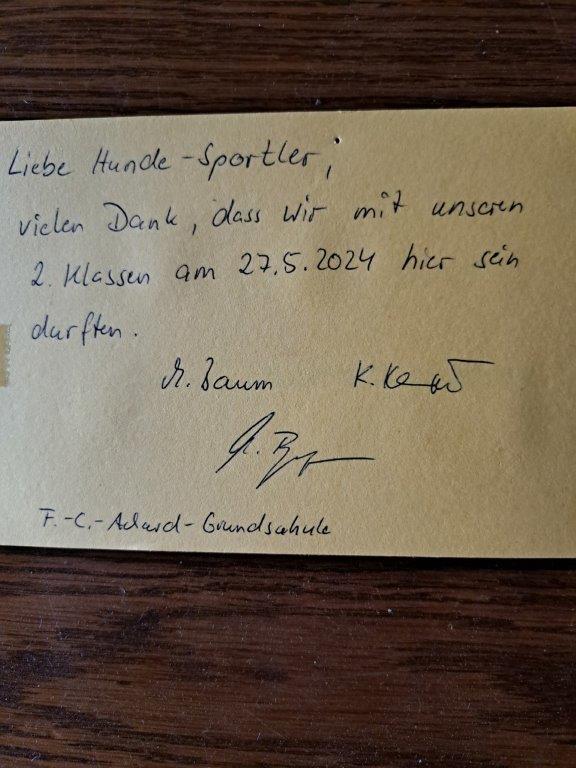 Liebe Hunde-Sportler,
vielen Dank, dass wir mit unseren
2. Klassen am 27.5.2024 hier sein
durften.
M. Baum K.
F.-C.-Achard-Grundschule